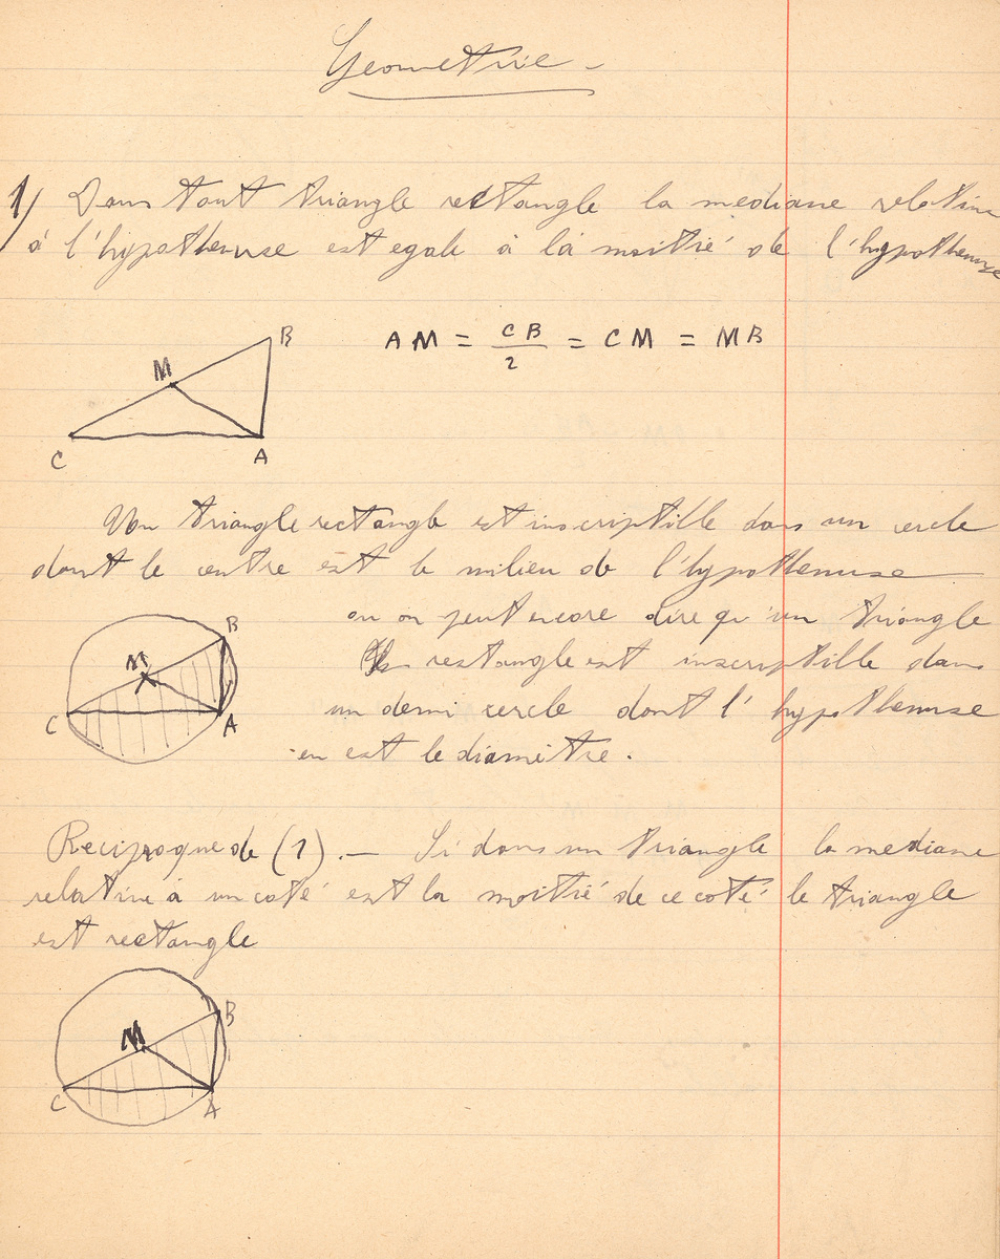 Geometrie -
1) Dans tout triangle rectangle la mediane relative
à l'hypothenuse est egale à la moitié de l'hypothenuse
B
M
C
A
AM = CB/2 = CM = MB
Un triangle rectangle est inscriptille dans un cercle
dont le centre est le milieu de l'hypothenuse
ou on peut encore dire qu'un triangle
rectangle est inscriptille dans
un demi cercle dont l'hypothenuse
en est le diamètre.
B
M
C
A
Reciproque de (1). — Si dans un triangle la mediane
relative à un coté est la moitié de ce coté le triangle
est rectangle
B
M
C
A